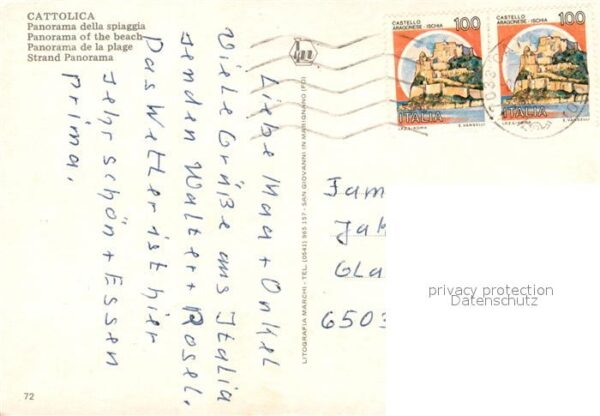 CATTOLICA
Panorama della spiaggia
Panorama of the beach
Panorama de la plage
Strand Panorama
Liebe Maa + Onkel
Viele Grüße aus Italia
senden Walter + Rosel.
Das Wetter ist hier
sehr schön + Essen
prima.
LITOGRAFIA MARCHI - TEL. (0541) 965 157 - SAN GIOVANNI IN MARIGNANO (FO)
CASTELLO
ARAGONESE - ISCHIA
100
ITALIA
I.P.Z.S. - ROMA
E. VANGELLI
CASTELLO
ARAGONESE - ISCHIA
100
ITALIA
I.P.Z.S. - ROMA
E. VANGELLI
Fam
Jak
Gla
6503
privacy protection
Datenschutz
72